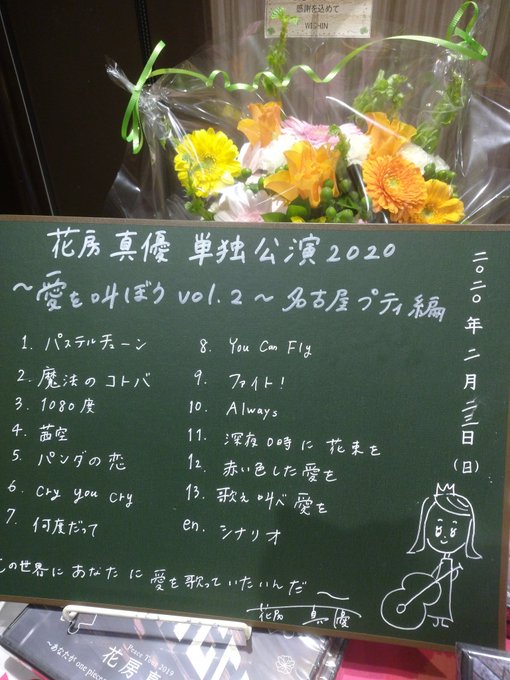 感謝を込めて
WISHIN
花房真優 単独公演2020
～愛を叫ぼう vol.2～名古屋プティ編
二〇二〇年二月二三日(日)
1. パステルチューン
2. 魔法のコトバ
3. 1080度
4. 茜空
5. パンダの恋
6. cry you cry
7. 何度だって
8. You Can Fly
9. ファイト!
10. Always
11. 深夜0時に花束を
12. 赤い色した愛を
13. 歌え叫べ愛を
en. シナリオ
この世界にあなたに愛を歌っていたいんだ～
花房 真優
Peace Tour 2019
～あなたが one piece
花房